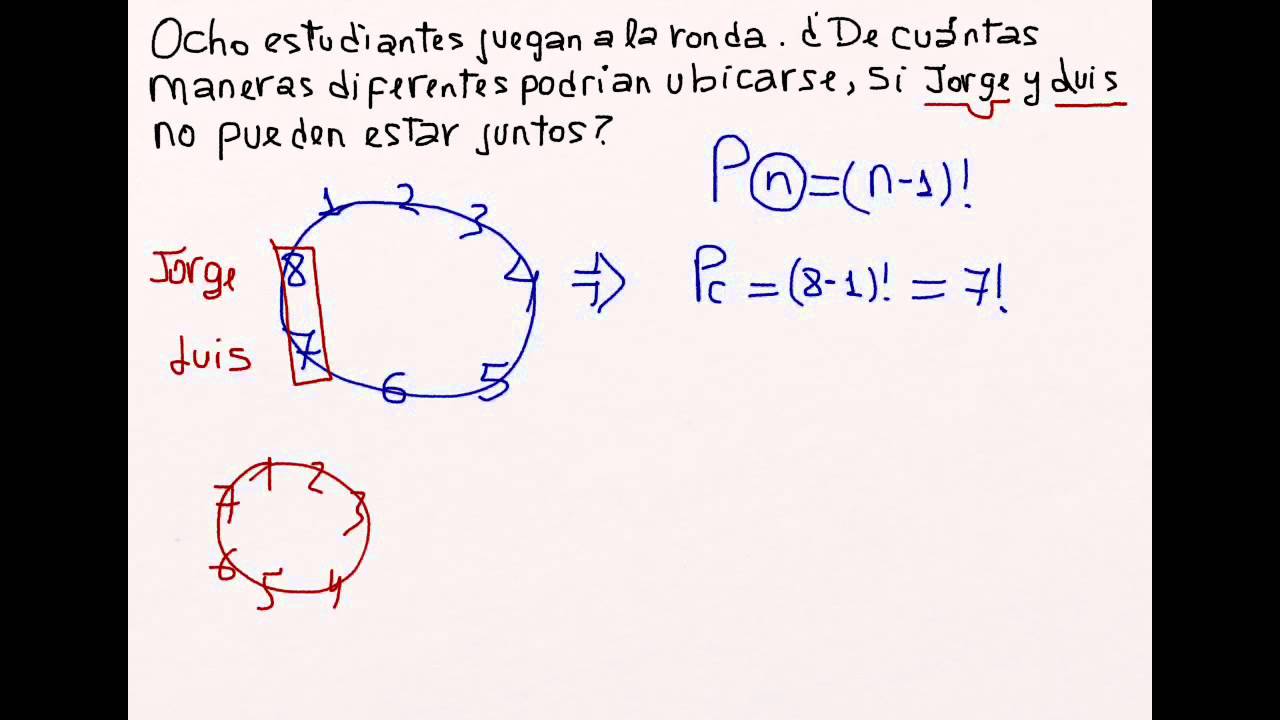 Ocho estudiantes juegan a la ronda. ¿De cuántas
maneras diferentes podrían ubicarse, Si Jorge y Luis
no pueden estar juntos?
Pn=(n-1)!
1 2 3 4 5 6 7 8
Jorge
Luis
⇒ Pc = (8-1)! = 7!
1 2 3 4 5 6 7